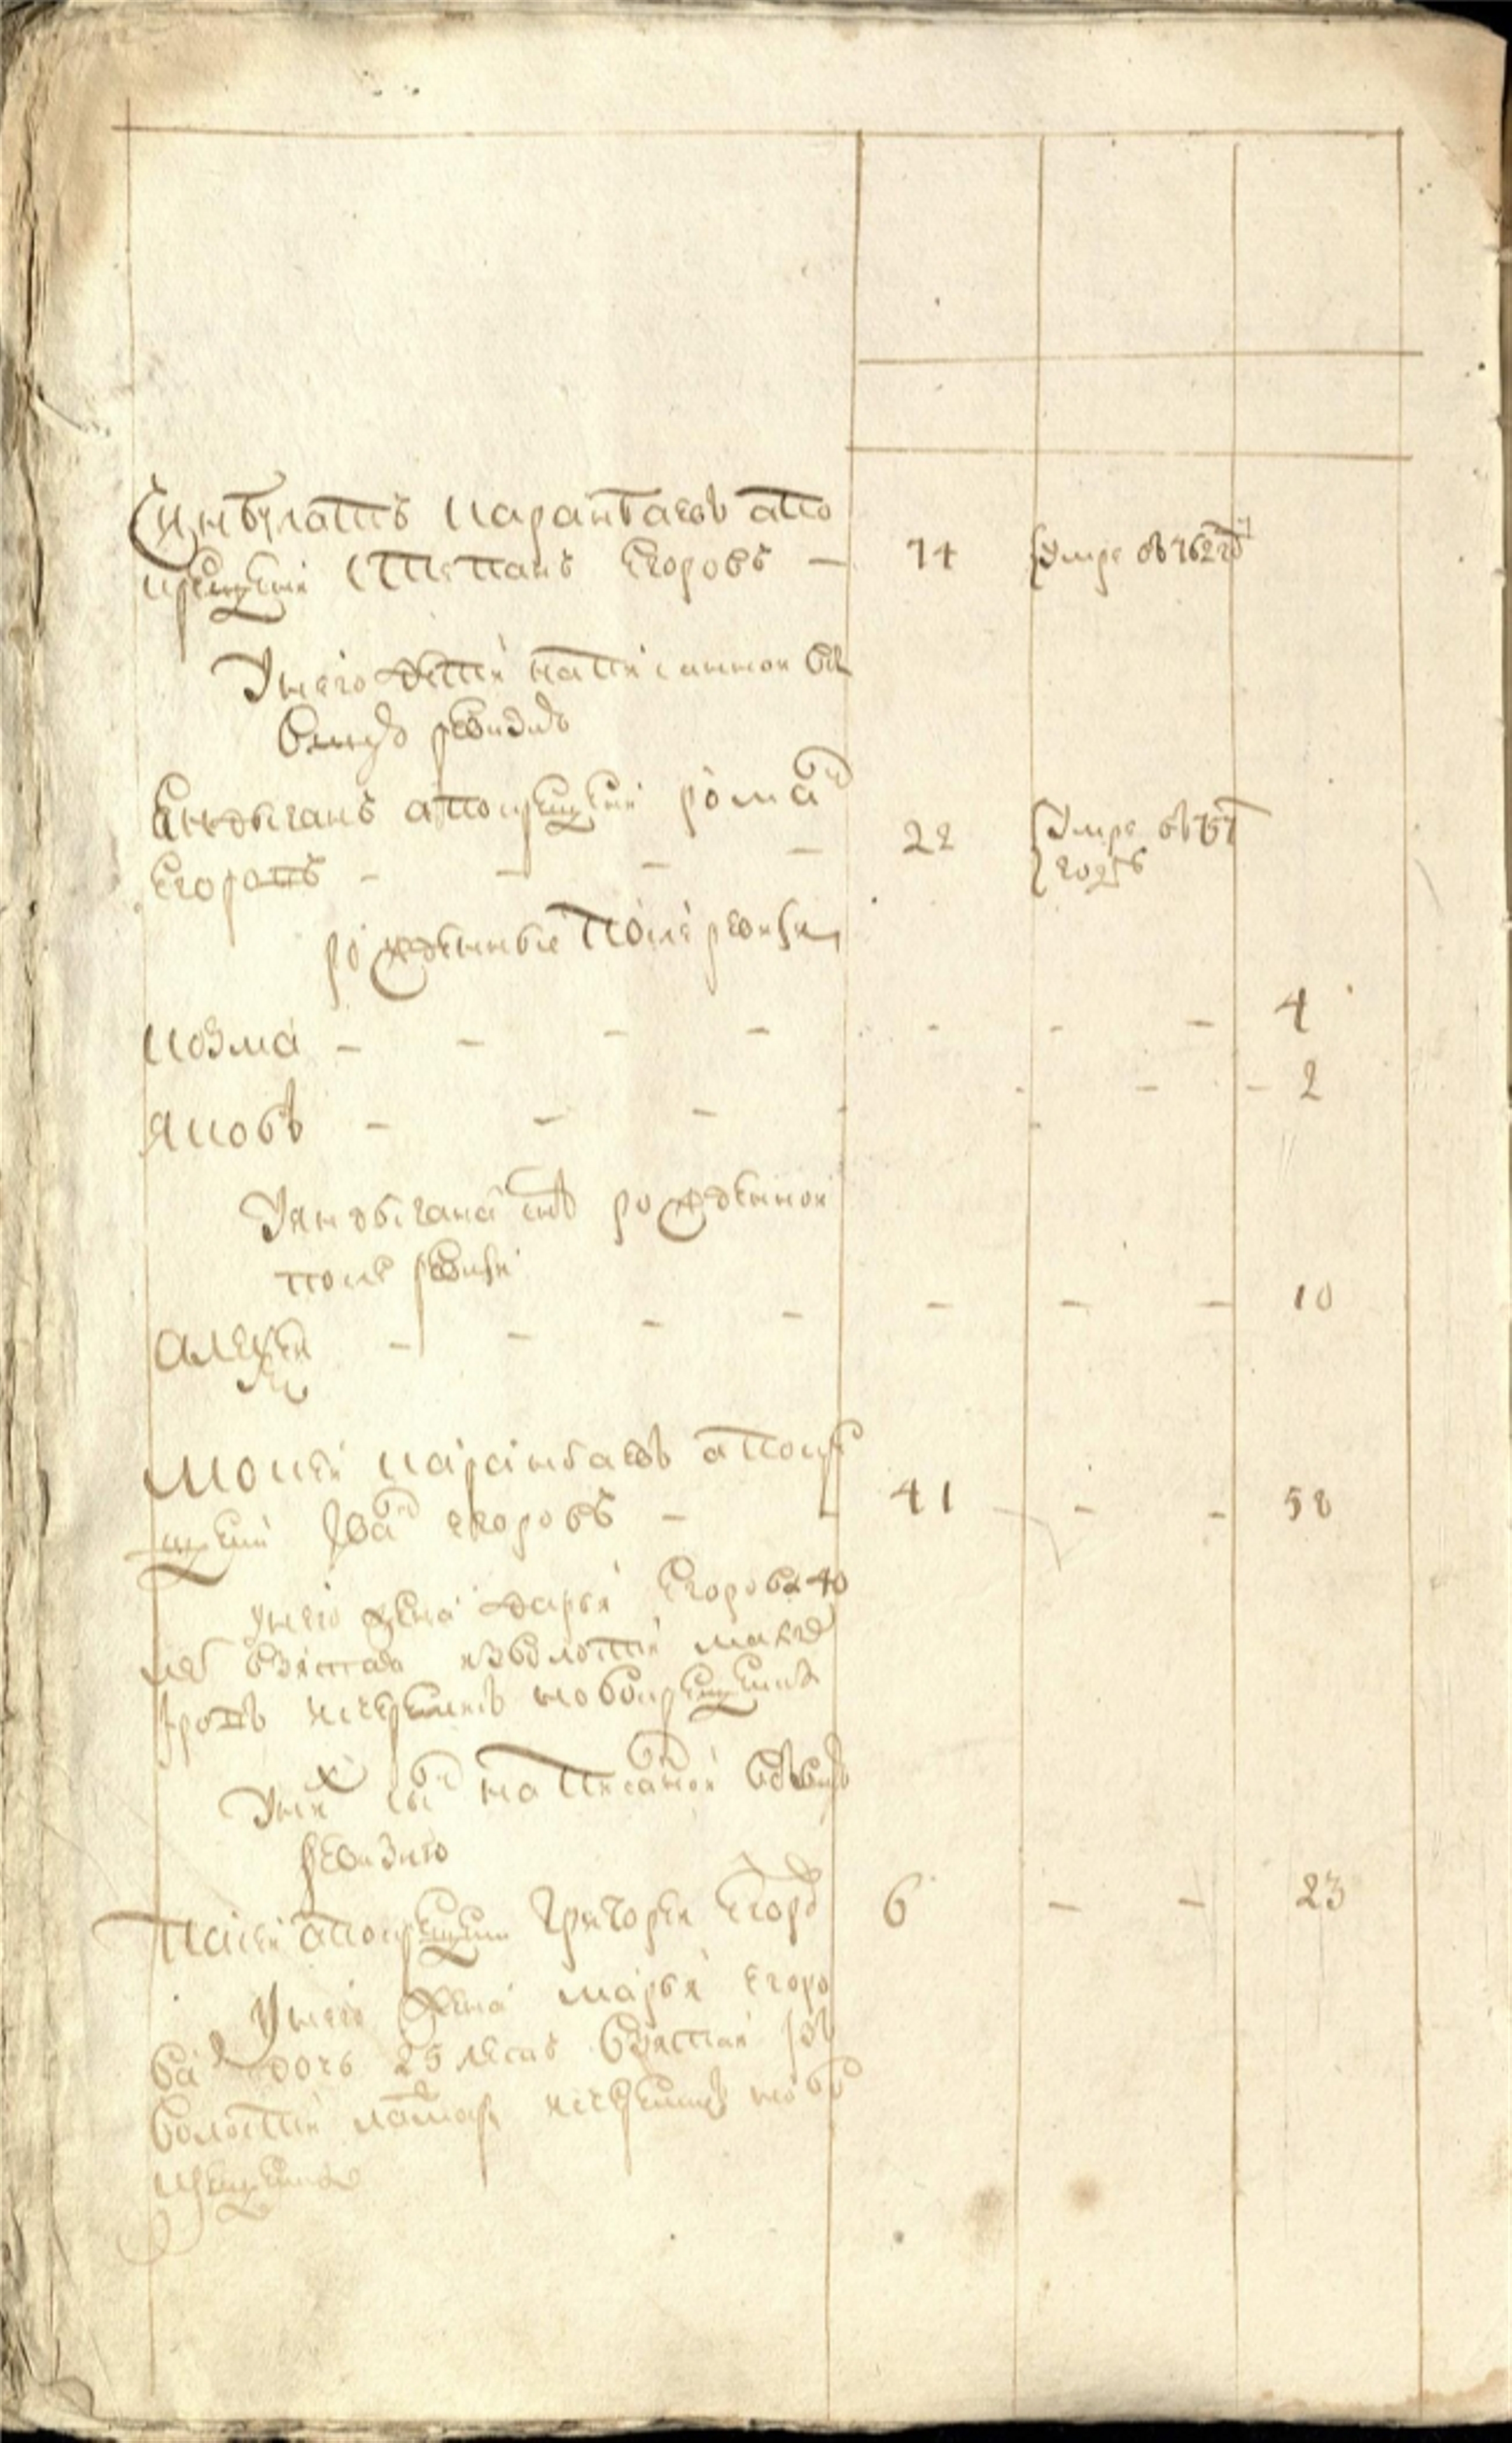 Симбулатъ Карантаевъ а по
крещении Степанъ Егоровъ — 74 умре въ 762 год
У него дети написанной в
ревизию
Ендыганъ а по крещении Романъ
Егоровъ — 22 умре въ 757 году
рожденные после ревизии
Козма — 4
Яковъ — 2
У Яндыгана рожденной
после ревизии
Алексеи — 10
Мокеи Карантаевъ а по кре
щении Иванъ Егоровъ — 41 58
У него жена Дарья Егорова 40
летъ взятая из волости
из черемисъ новокрещеныхъ
У них сынъ написанной
ревизию
Пасеи а по крещении Григореи Егоровъ 6 23
У него жена Марья Егоро
ва дочь 25 летъ взятая
волости из черемисъ ново
крещеныхъ